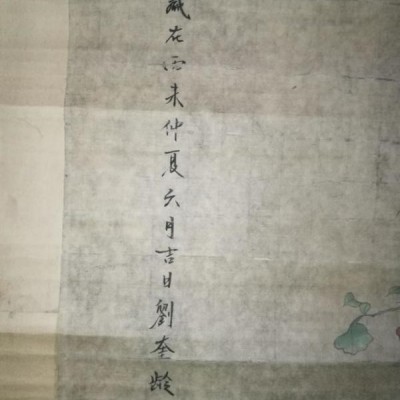 歲在酉未仲夏六月吉日劉奎齡